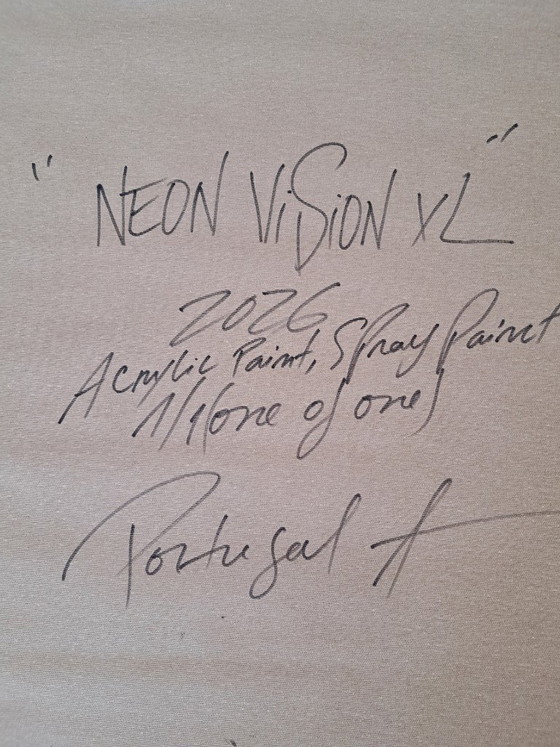 "NEON ViSiON XL"
2026
Acrylic Paint, Spray Paint
1/1(one of one)
Portugal